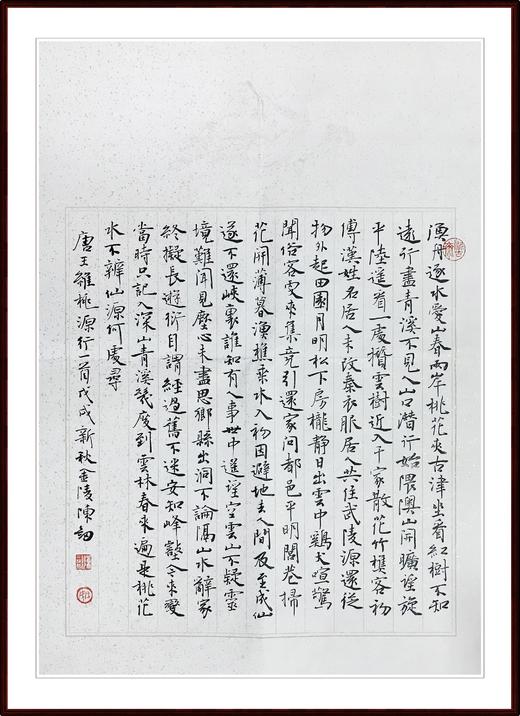 漁舟逐水愛山春兩岸桃花夾古津坐看紅樹不知
遠行盡青溪不見人山口潛行始隈隩山開曠望旋
平陸遙看一處攢雲樹近入千家散花竹樵客初
傳漢姓名居人未改秦衣服居人共住武陵源還從
物外起田園月明松下房櫳靜日出雲中鷄犬喧驚
聞俗客爭來集竞引還家问都邑平明閭巷掃
花開薄暮漁樵乘水入初因避地去人間及至成仙
遂不還峽裏誰知有人事世中遙望空雲山不疑靈
境難聞見塵心未盡思鄉縣出洞不論隔山水辭家
終擬長遊衍自謂經過舊不迷安知峰壑今來變
當時只記入深山青溪幾度到雲林春來遍是桃花
水不辨仙源何處尋
唐王維桃源行一首戊戌新秋金陵陳